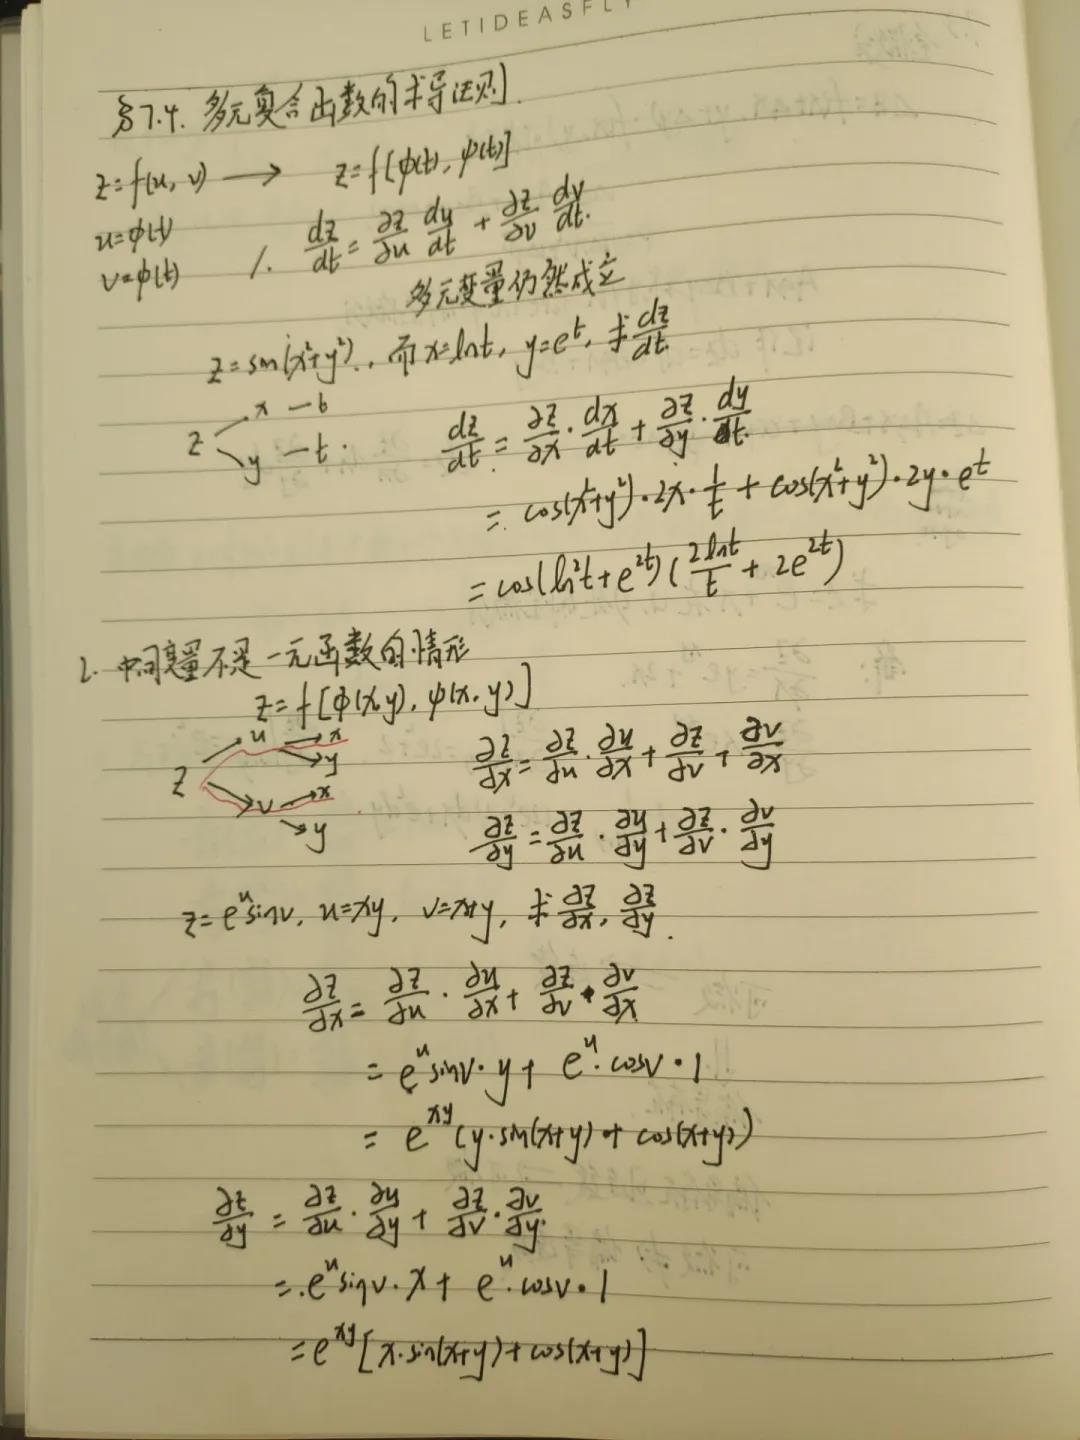 LETIDEASFLY
§7.4. 多元复合函数的求导法则
z=f(u, v) ⟶ z=f[φ(t), ψ(t)]
u=φ(t)
v=φ(t)
1. dz/dt = ∂z/∂u du/dt + ∂z/∂v dv/dt.
多元变量仍然成立
z=sin(x²+y²), 而 x=lnt, y=e^t, 求 dz/dt
z x — t
y — t.
dz/dt = ∂z/∂x · dx/dt + ∂z/∂y · dy/dt.
= cos(x²+y²)·2x·1/t + cos(x²+y²)·2y·e^t
= cos(ln²t+e^{2t})(2lnt/t + 2e^{2t})
2. 中间变量不是一元函数的情形
z=f[φ(x,y), ψ(x,y)]
z u → x
→ y
v → x
→ y
∂z/∂x = ∂z/∂u · ∂u/∂x + ∂z/∂v + ∂v/∂x
∂z/∂y = ∂z/∂u · ∂u/∂y + ∂z/∂v · ∂v/∂y
z=e^u sinv, u=xy, v=x+y, 求 ∂z/∂x, ∂z/∂y.
∂z/∂x = ∂z/∂u · ∂u/∂x + ∂z/∂v · ∂v/∂x
= e^u sinv·y + e^u·cosv·1
= e^{xy}(y·sin(x+y) + cos(x+y))
∂z/∂y = ∂z/∂u · ∂u/∂y + ∂z/∂v · ∂v/∂y.
= e^u sinv·x + e^u·cosv·1
= e^{xy}[x·sin(x+y)+cos(x+y)]